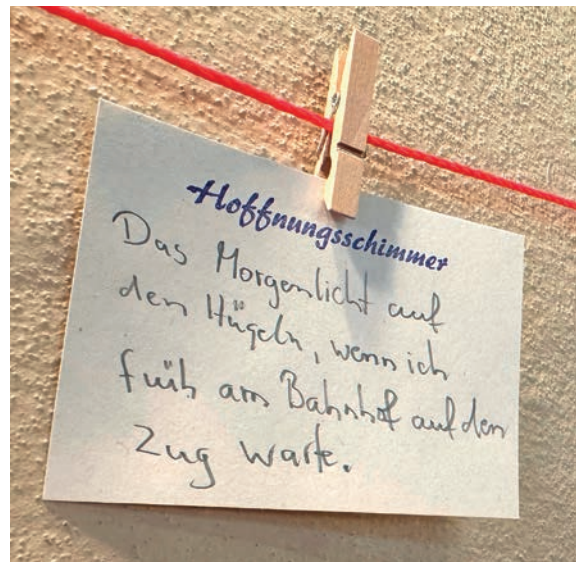 Hoffnungsschimmer
Das Morgenlicht auf
den Hügeln, wenn ich
früh am Bahnhof auf den
Zug warte.